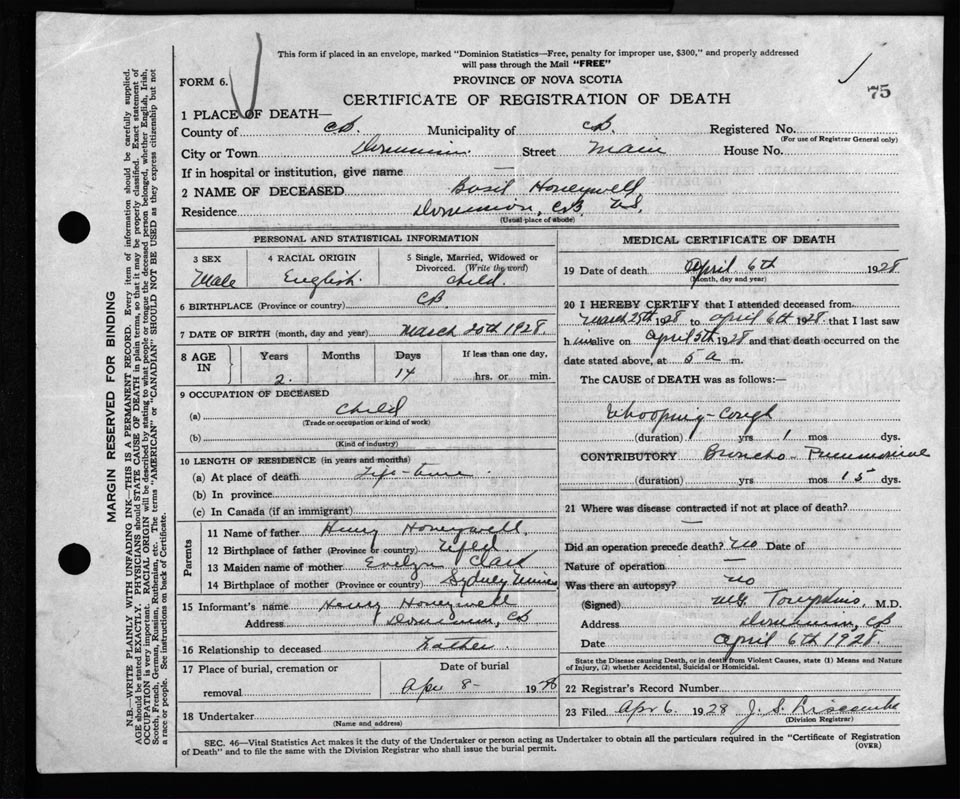 This form if placed in an envelope, marked "Dominion Statistics—Free, penalty for improper use, $300," and properly addressed
will pass through the Mail "FREE"
FORM 6.
PROVINCE OF NOVA SCOTIA
75
CERTIFICATE OF REGISTRATION OF DEATH
1 PLACE OF DEATH—
County of CB. Municipality of CB. Registered No.
(For use of Registrar General only)
City or Town Dominion. Street Main House No.
If in hospital or institution, give name —
2 NAME OF DECEASED Basil Honeywell
Residence Dominion, CB NS.
(Usual place of abode)
PERSONAL AND STATISTICAL INFORMATION
3 SEX 4 RACIAL ORIGIN 5 Single, Married, Widowed or
Divorced. (Write the word)
Male English. Child.
6 BIRTHPLACE (Province or country) CB
7 DATE OF BIRTH (month, day and year) March 20th 1928.
8 AGE IN Years Months Days If less than one day,
2. 14 hrs. or min.
9 OCCUPATION OF DECEASED
(a) Child
(Trade or occupation or kind of work)
(b)
(Kind of industry)
10 LENGTH OF RESIDENCE (in years and months)
(a) At place of death Life-time.
(b) In province
(c) In Canada (if an immigrant)
Parents
11 Name of father Henry Honeywell.
12 Birthplace of father (Province or country) Nfld.
13 Maiden name of mother Evelyn Clark
14 Birthplace of mother (Province or country) Sydney Mines
15 Informant's name Henry Honeywell
Address Dominion, CB
16 Relationship to deceased Father.
17 Place of burial, cremation or Date of burial
removal Apr 8- 1928
18 Undertaker
(Name and address)
MEDICAL CERTIFICATE OF DEATH
19 Date of death April 6th 1928
(Month, day and year)
20 I HEREBY CERTIFY that I attended deceased from
March 25th 1928 to April 6th 1928 that I last saw
him alive on April 5th 1928 and that death occurred on the
date stated above, at 5 a m.
The CAUSE OF DEATH was as follows:—
Whooping-Cough
(duration) yrs 1 mos dys.
CONTRIBUTORY Broncho-Pneumonia
(duration) yrs mos 15 dys.
21 Where was disease contracted if not at place of death?
—
Did an operation precede death? No Date of
Nature of operation —
Was there an autopsy? No
(Signed) Tompkins, M.D.
Address Dominion, CB
Date April 6th 1928.
State the Disease causing Death, or in death from Violent Causes, state (1) Means and Nature
of Injury, (2) whether Accidental, Suicidal or Homicidal.
22 Registrar's Record Number
23 Filed Apr 6. 1928 J. S.
(Division Registrar)
SEC. 46—Vital Statistics Act makes it the duty of the Undertaker or person acting as Undertaker to obtain all the particulars required in the "Certificate of Registration
of Death" and to file the same with the Division Registrar who shall issue the burial permit.
(OVER)
MARGIN RESERVED FOR BINDING
N.B.—WRITE PLAINLY WITH UNFADING INK—THIS IS A PERMANENT RECORD. Every item of information should be carefully supplied.
AGE should be stated EXACTLY. PHYSICIANS should STATE CAUSE OF DEATH in plain terms, so that it may be properly classified. Exact statement of
OCCUPATION is very important. RACIAL ORIGIN will be described by stating to what people or tongue the deceased person belonged, whether English, Irish,
Scotch, French, German, Russian, Ruthenian, etc. The terms "AMERICAN" or "CANADIAN" SHOULD NOT BE USED as they express citizenship but not
a race or people. See instructions on back of Certificate.